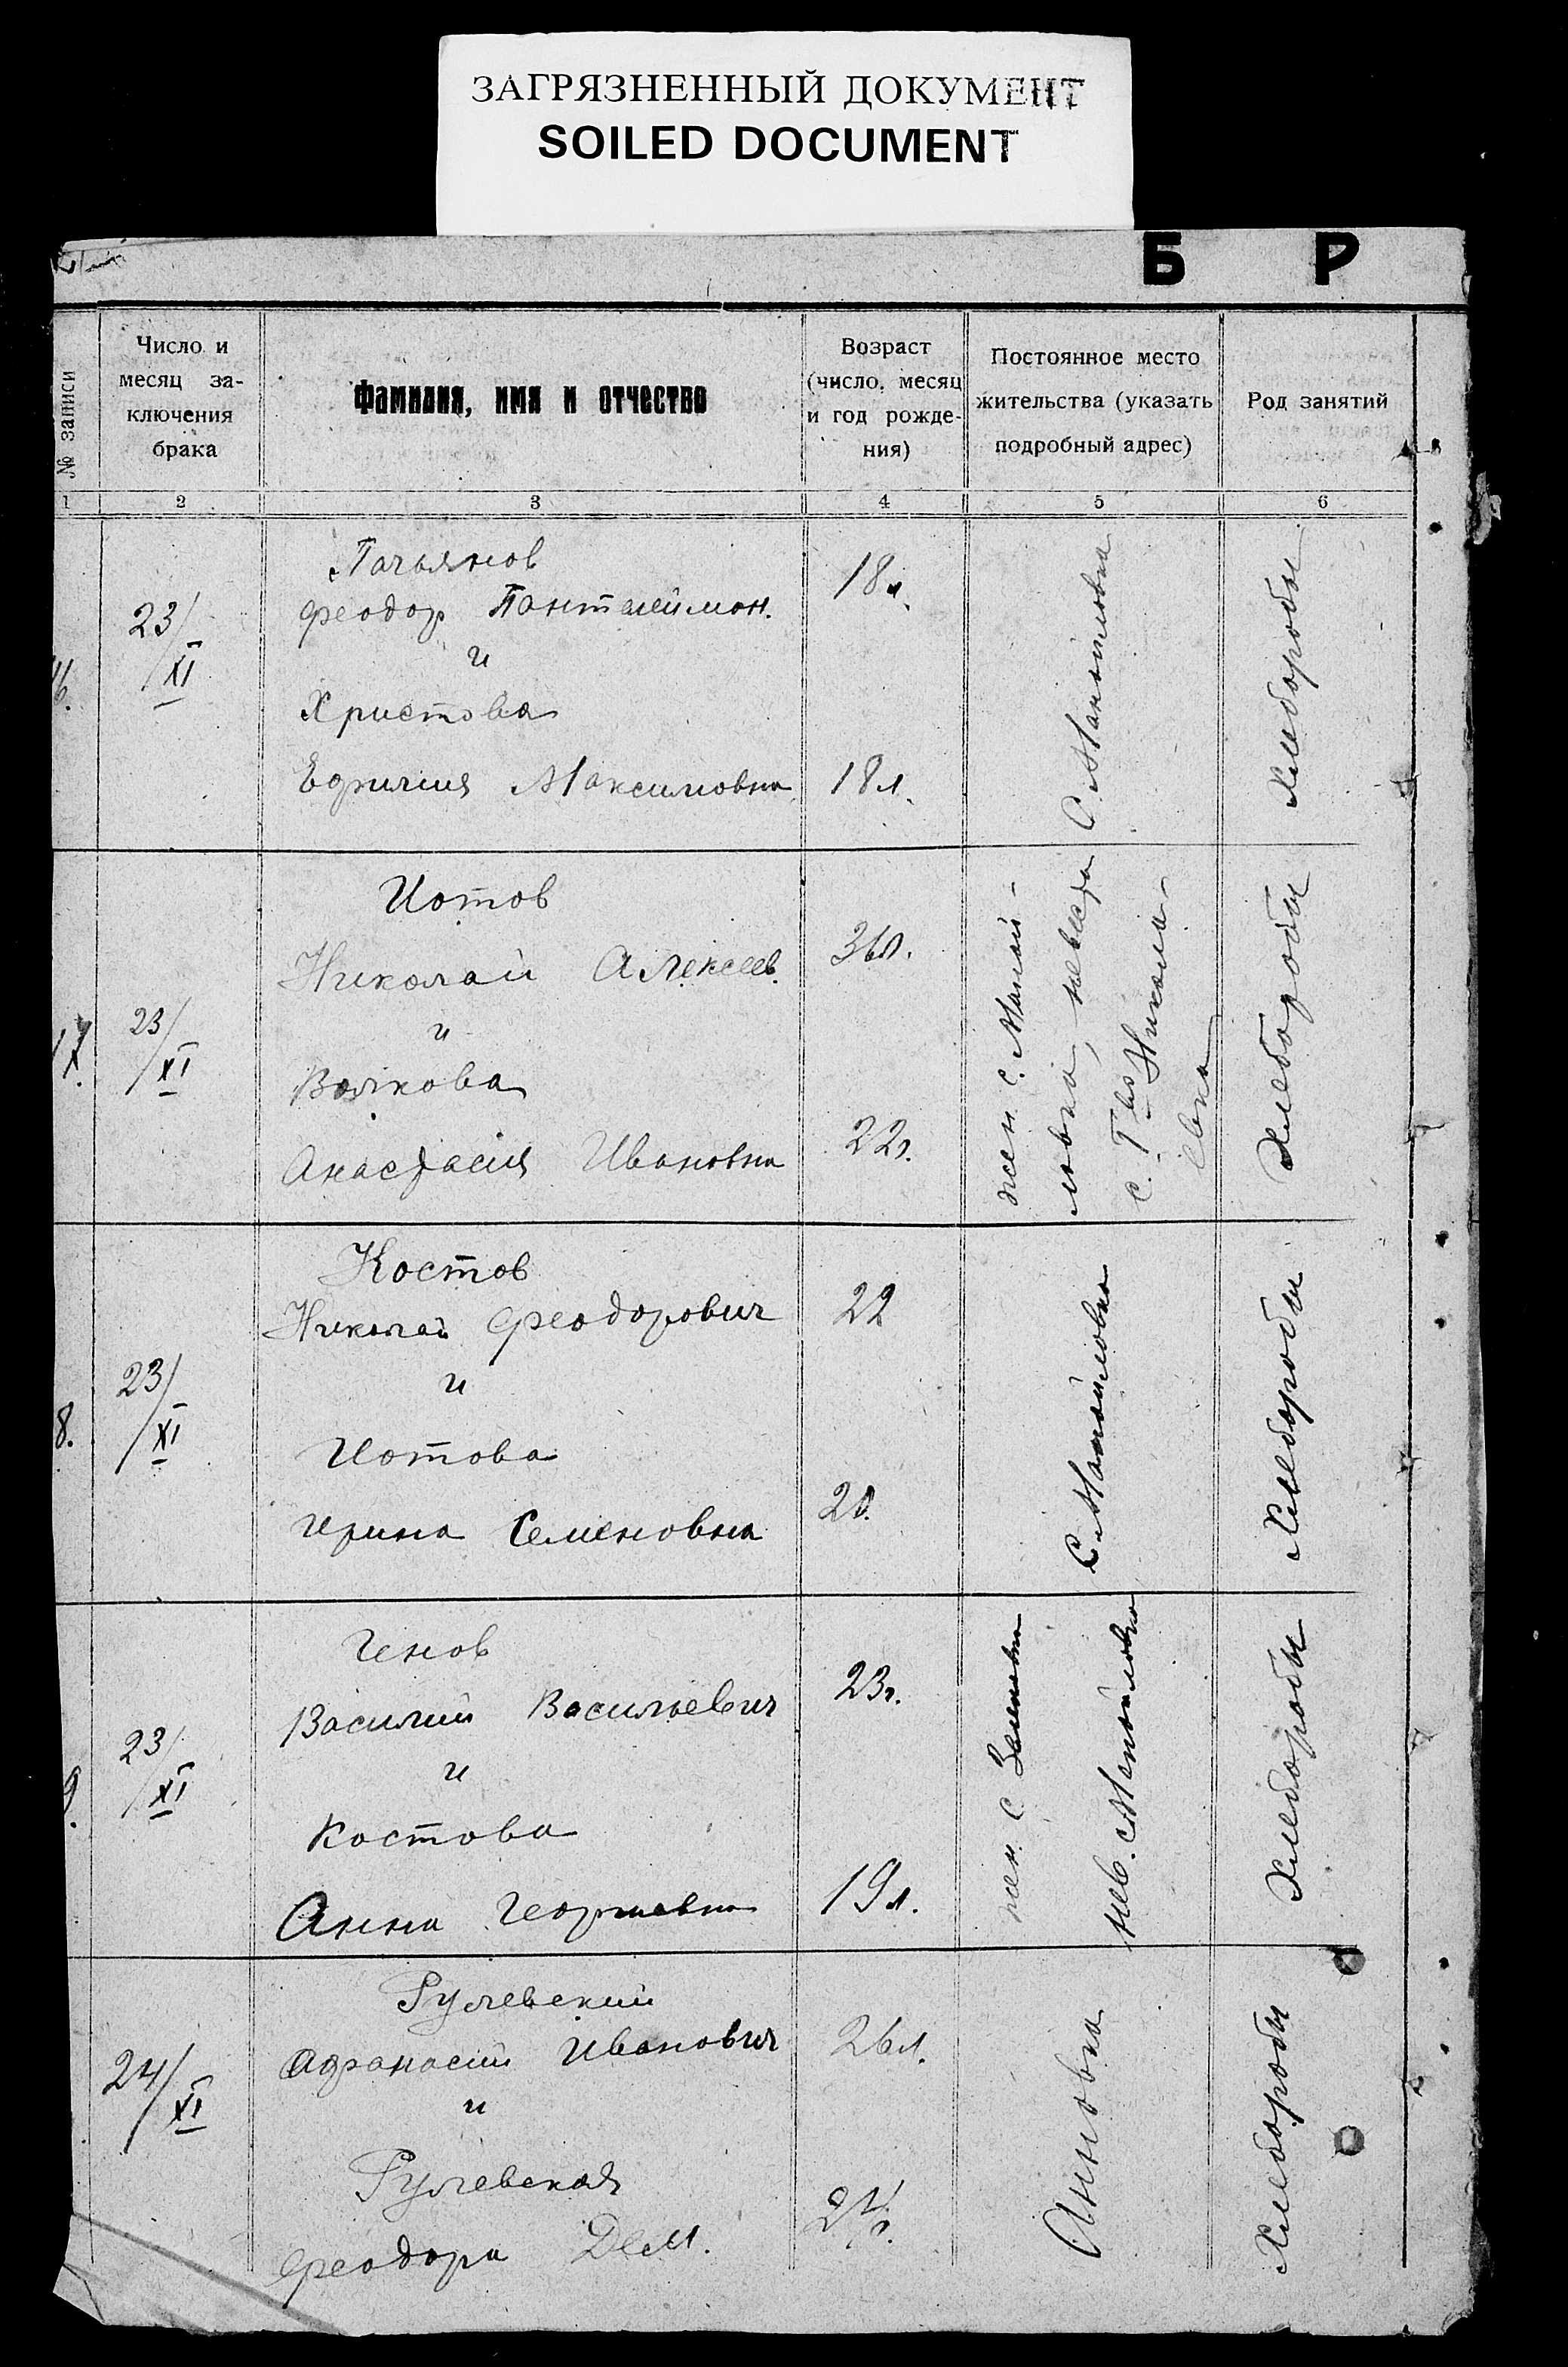 ЗАГРЯЗНЕННЫЙ ДОКУМЕНТ
SOILED DOCUMENT
Б Р
№ записи
Число и
месяц за-
ключения
брака
Фамилия, имя и отчество
Возраст
(число, месяц
и год рожде-
ния)
Постоянное место
жительства (указать
подробный адрес)
Род занятий
1 2 3 4 5 6
6.
23/XI
Феодор Пантелеймон.
и
Христова
Максимовна
18 л.
18 л.
С. Манойловка
Хлеборобы
17.
23/XI
Иотов
Николай Алексеев.
и
Волкова
Анастасия Ивановна
22г.
жен. с. Маной-
ловка, невеста
с. Никола-
евка
Хлеборобы
8.
23/XI
Костов
Николай Феодорович
и
Иотова
Ирина Семеновна
22
С. Манойловка
Хлеборобы
9.
23/XI
Генов
Василий Васильевич
и
Костова
Анна Георгиевна
23г.
19 л.
жен. С
нев. с Манойловка
Хлеборобы
24/XI
Гулевский
Афанасий Иванович
и
Гулевская
Феодора Дем.
26 л.
Анновка
Хлеборобы